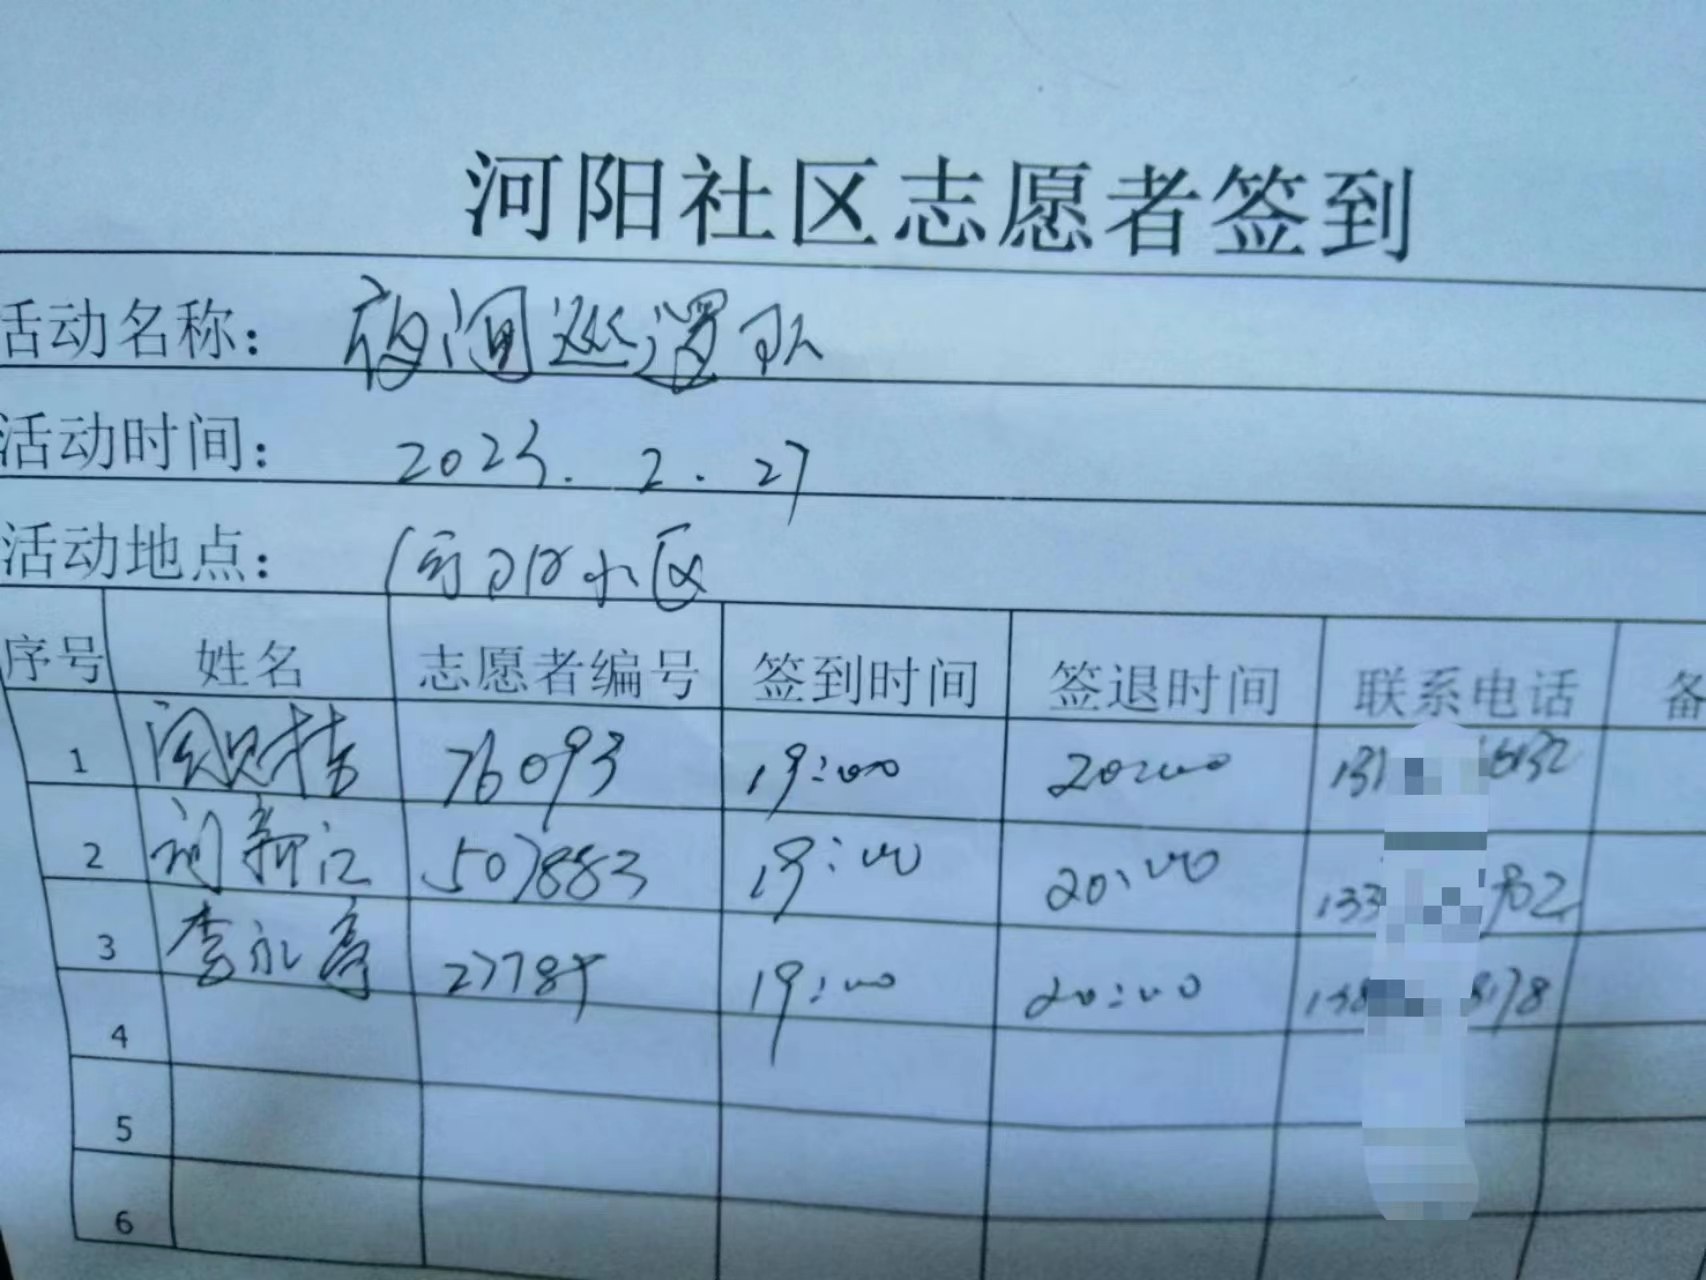 河阳社区志愿者签到
活动名称: 夜间巡逻队
活动时间: 2023.2.27
活动地点: 小区
序号 姓名 志愿者编号 签到时间 签退时间 联系电话 备
1 76093 19:00 20:00 131 6132
2 刘新江 507883 19:00 20:00 133 902
3 李永亭 27784 19:00 20:00 138 8178
4
5
6